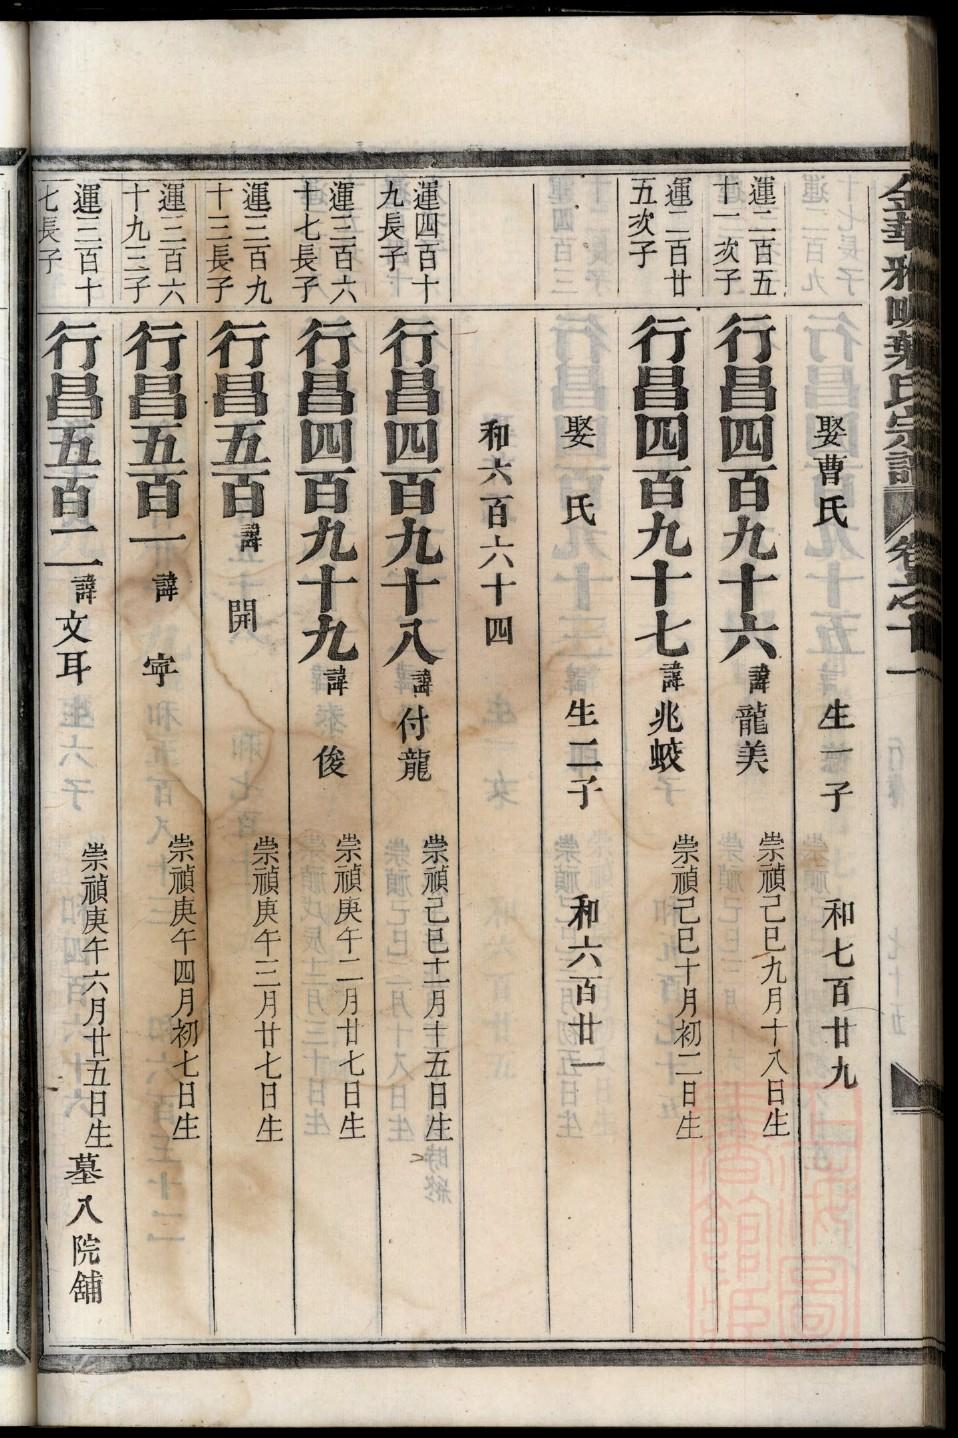 金華雅畈葉氏宗譜 卷之十一
娶曹氏 生一子 和七百廿九
運二百五十一次子 行昌四百九十六 諱龍美 崇禎己巳九月十八日生
運二百廿五次子 行昌四百九十七 諱兆蛟 崇禎己巳十月初二日生
娶 氏 生二子 和六百廿一
和六百六十四
運四百十九長子 行昌四百九十八 諱付龍 崇禎己巳十一月十五日生
運三百六十七長子 行昌四百九十九 諱俊 崇禎庚午二月廿七日生
運三百九十三長子 行昌五百 諱開 崇禎庚午三月廿七日生
運三百六十九三子 行昌五百一 諱寧 崇禎庚午四月初七日生
運三百十七長子 行昌五百二 諱文耳 崇禎庚午六月廿五日生 墓八院舖